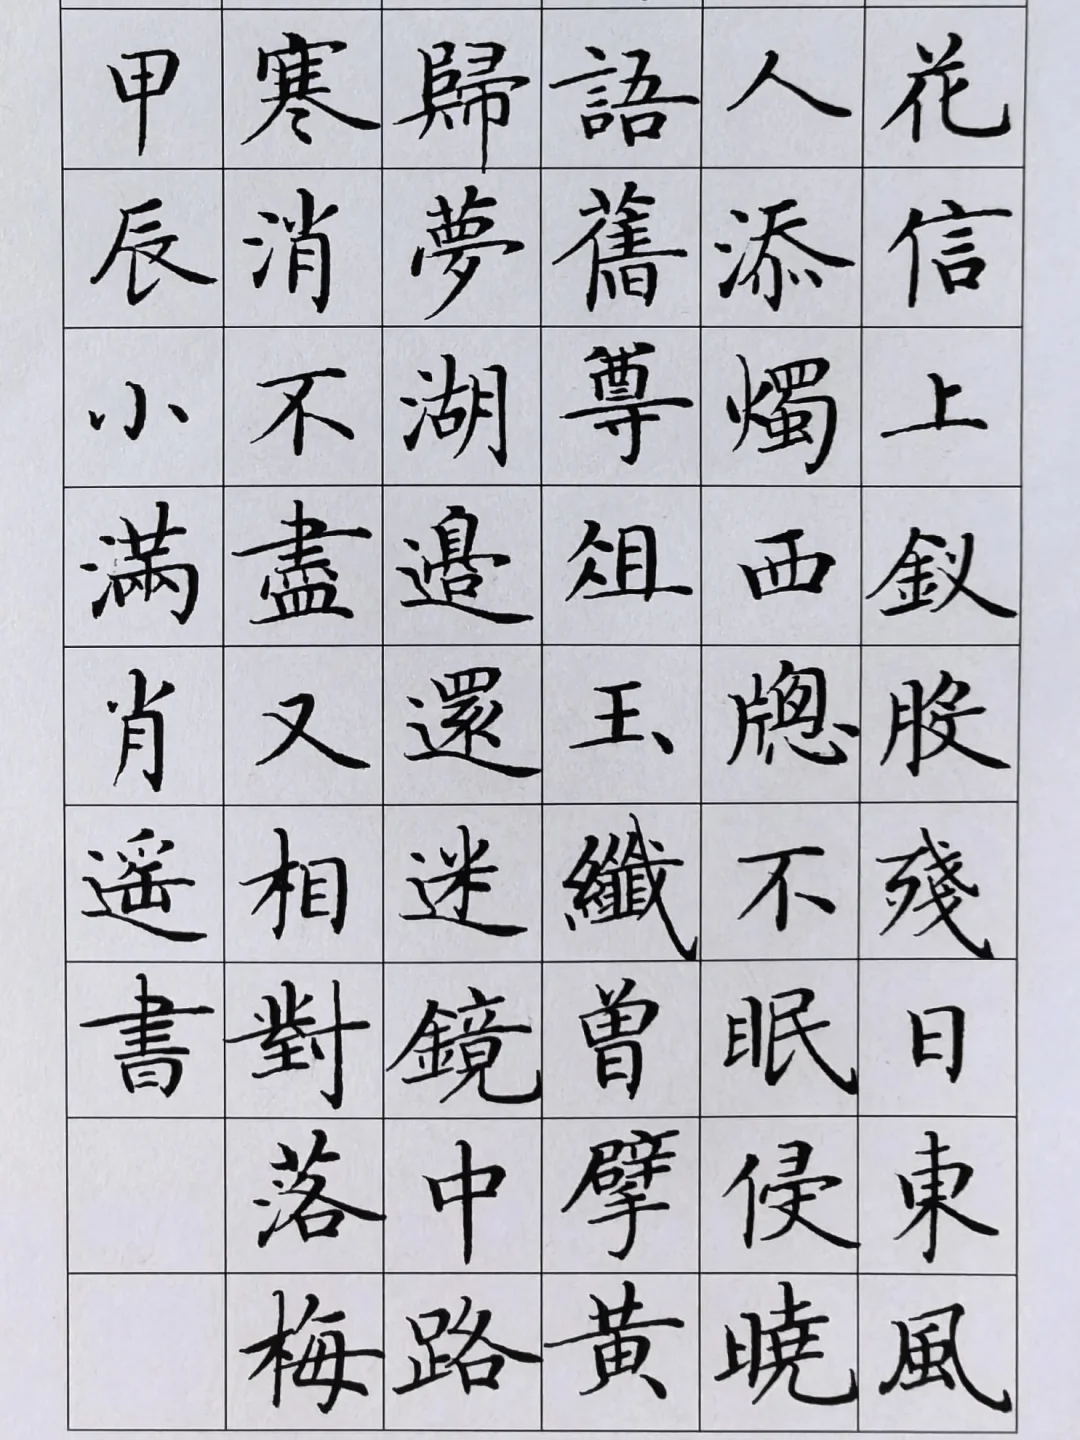 花信上釵股殘日東風
人添燭西牕不眠侵曉
語舊尊俎玉纖曾擘黃
歸夢湖邊還迷鏡中路
寒消不盡又相對落梅
甲辰小滿肖遥書